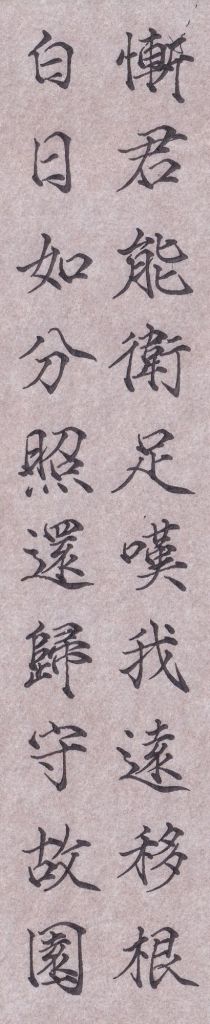 慚君能衛足嘆我遠移根
白日如分照還歸守故園